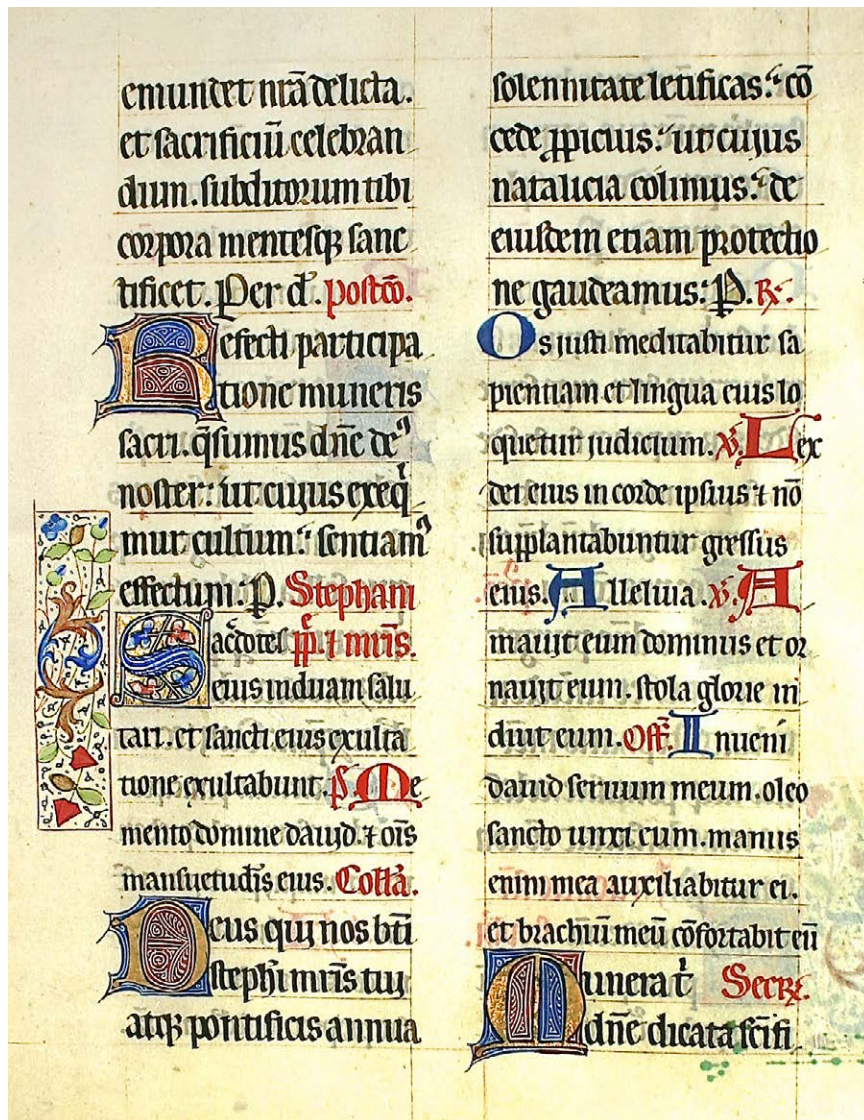 emundet nrā delicta.
et sacrificiū celebran
dum. subditorum tibi
corpora mentesqꝫ sanc
tificet. Per d̄. postcō.
Refecti participa
tione muneris
sacri. q̄sumus dn̄e deꝰ
noster: ut cujus exeqͥ
mur cultum: sentiamꝰ
effectum. P. Stephani
Sac̄dotes pp̄. ⁊ mr̄is.
eius induam salu
tari. et sancti eius exulta
tione exultabunt. ps̄. Me
mento domine dauid. ⁊ oīs
mansuetudīs eius. Coll̄a.
Deus qui nos bt̄i
steph̄i mr̄is tuj
atqꝫ pontificis annua
solennitate letificas: cō
cede ꝓpicius: ut cujus
natalicia colimus: de
eiusdem etiam protectio
ne gaudeamus: P. ℞.
Os justi meditabitur sa
pientiam et lingua eius lo
quetur judicium. ℣. Lex
dei eius in corde ipsius ⁊ nō
supplantabuntur gressus
eius. Alleluia. ℣. A
mauit eum dominus et or
nauit eum. stola glorie in
duit eum. Off̄. Inueni
dauid seruum meum. oleo
sancto unxi eum. manus
enim mea auxiliabitur ei.
et brachiū meū cōfortabit eū
Munera t̄ Secr̄.
dn̄e dicata sc̄ifi